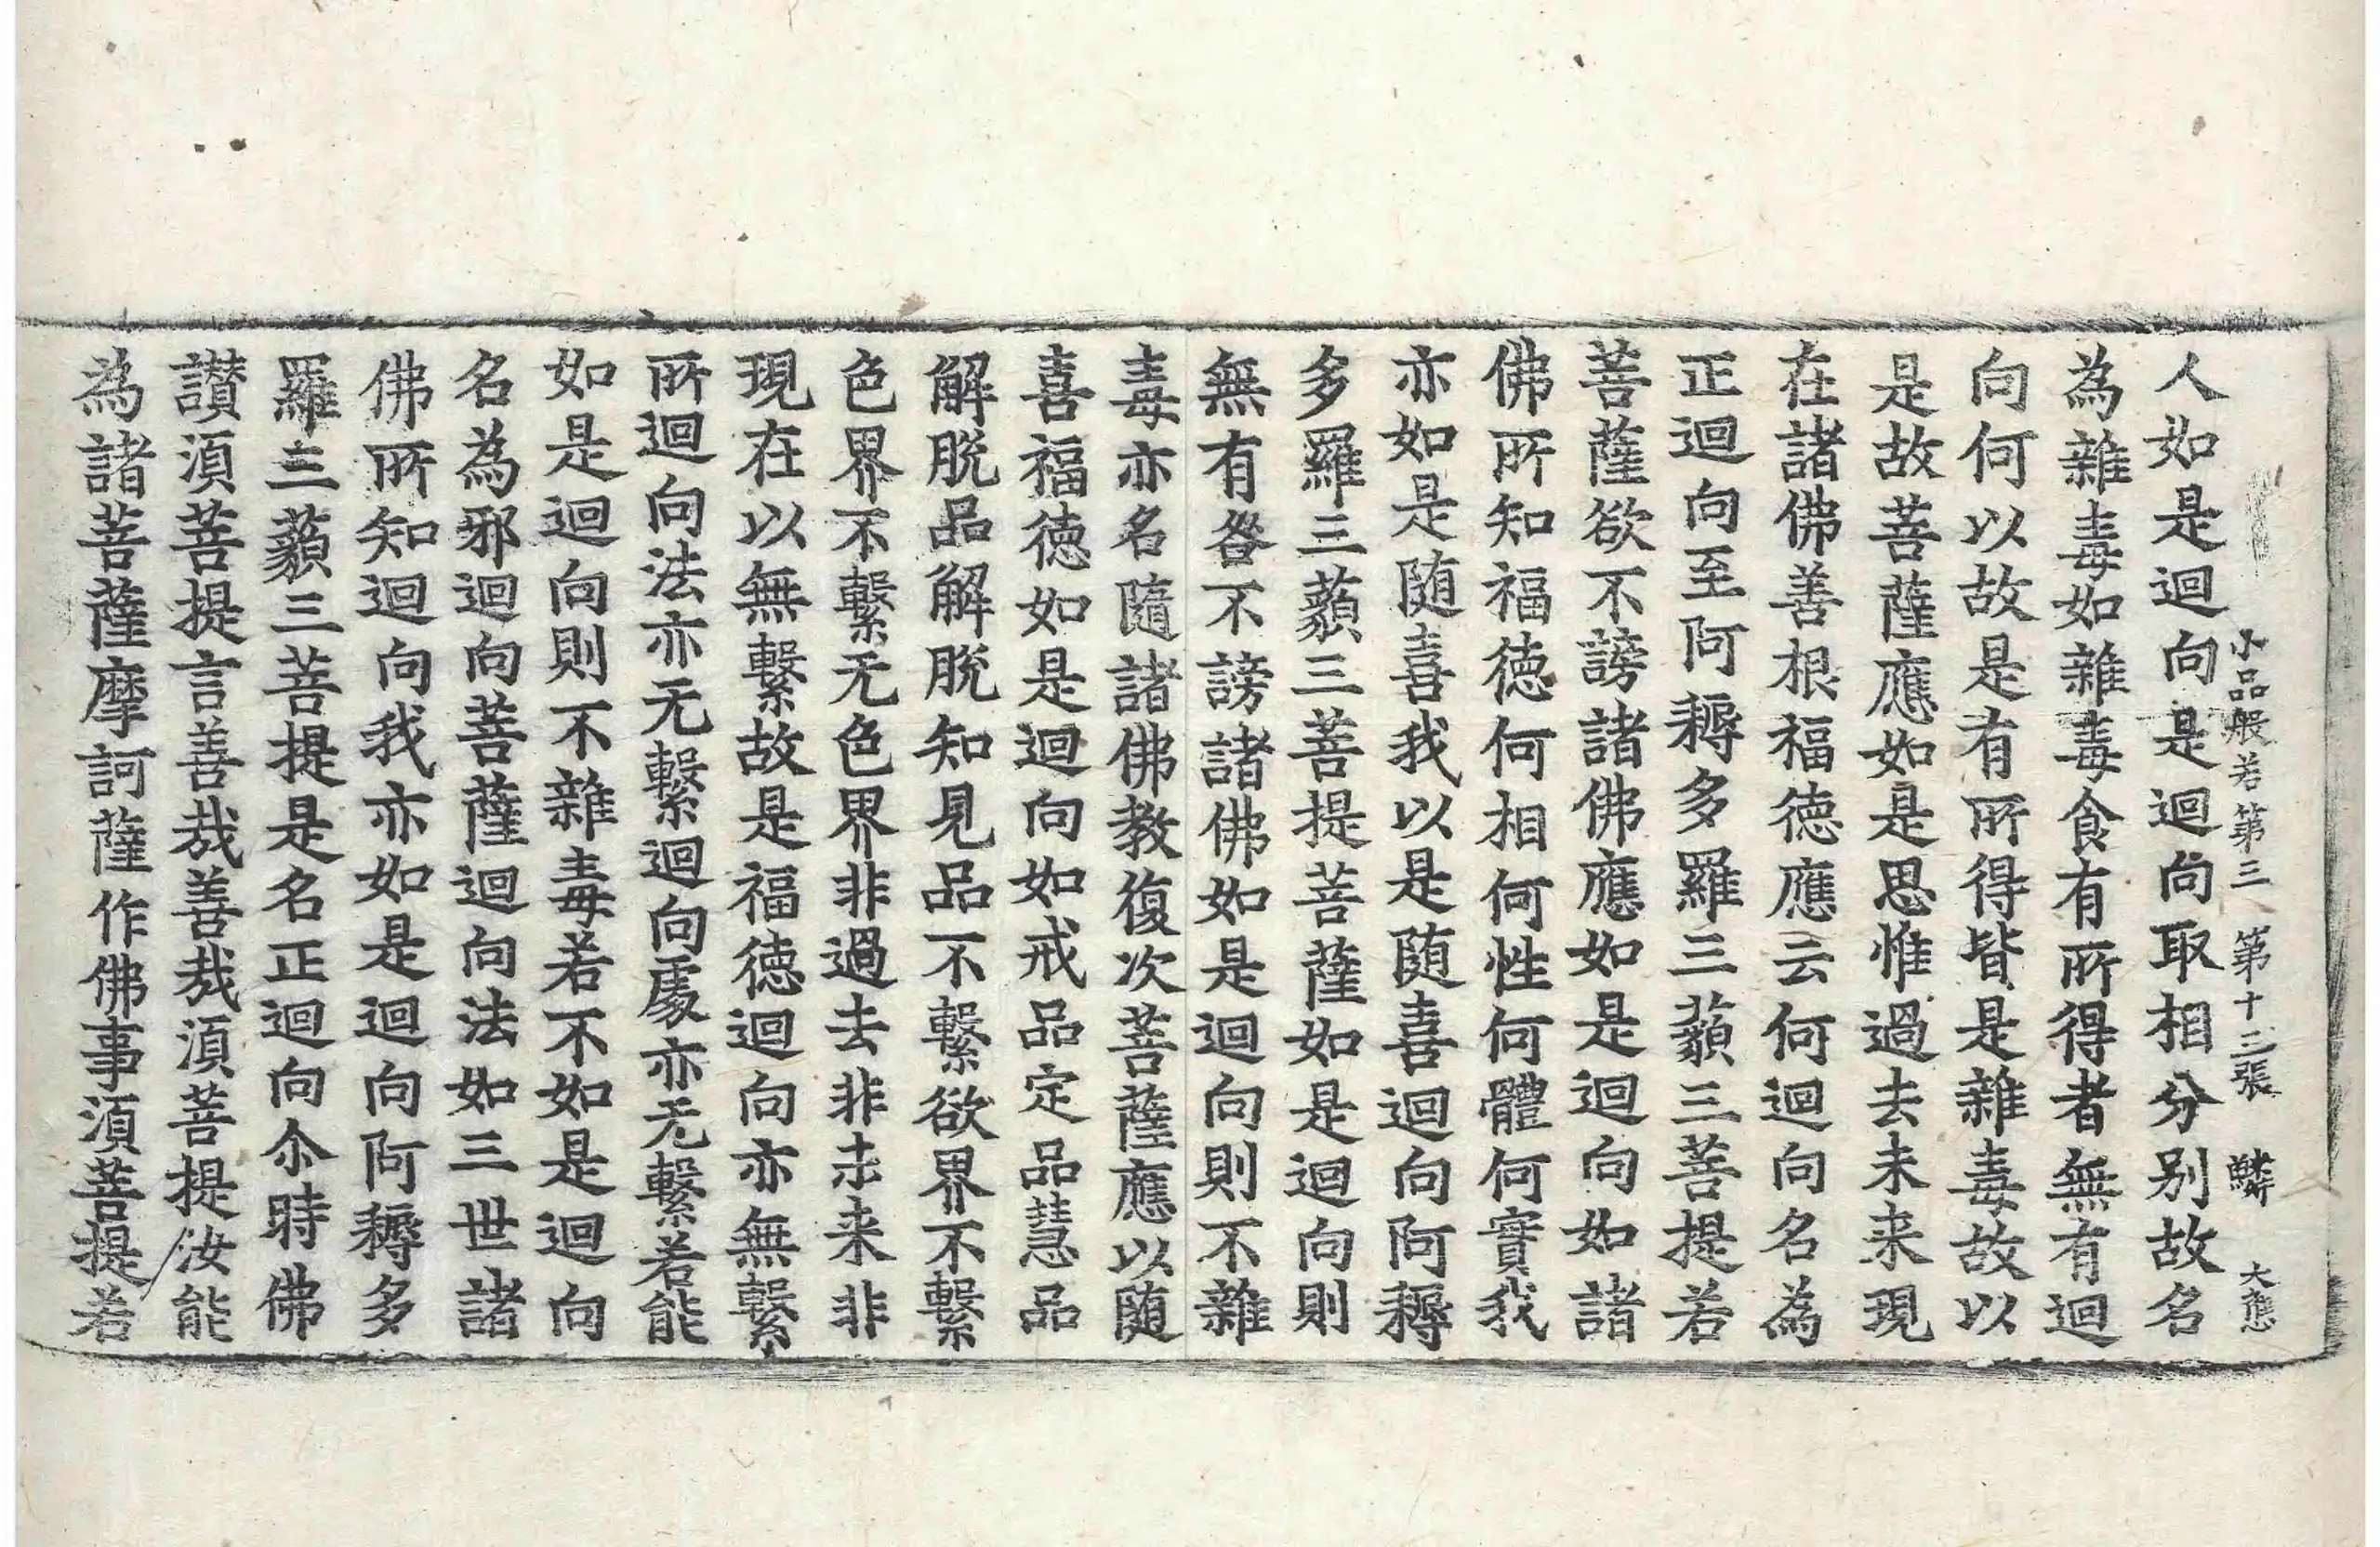 小品般若第三 第十三張 鱗 大㤗
人如是迴向是迴向取相分别故名
為雜毒如雜毒食有所得者無有迴
向何以故是有所得皆是雜毒故以
是故菩薩應如是思惟過去未来現
在諸佛善根福徳應云何迴向名為
正迴向至阿耨多羅三藐三菩提若
菩薩欲不謗諸佛應如是迴向如諸
佛所知福徳何相何性何體何實我
亦如是随喜我以是随喜迴向阿耨
多羅三藐三菩提菩薩如是迴向則
無有咎不謗諸佛如是迴向則不雜
毒亦名隨諸佛教復次菩薩應以随
喜福徳如是迴向如戒品定品慧品
解脱品解脱知見品不繫欲界不繫
色界不繫无色界非過去非未来非
現在以無繫故是福徳迴向亦無繫
所迴向法亦无繫迴向處亦无繫若能
如是迴向則不雜毒若不如是迴向
名為邪迴向菩薩迴向法如三世諸
佛所知迴向我亦如是迴向阿耨多
羅三藐三菩提是名正迴向尒時佛
讃湏菩提言善哉善哉湏菩提汝能
為諸菩薩摩訶薩作佛事湏菩提若